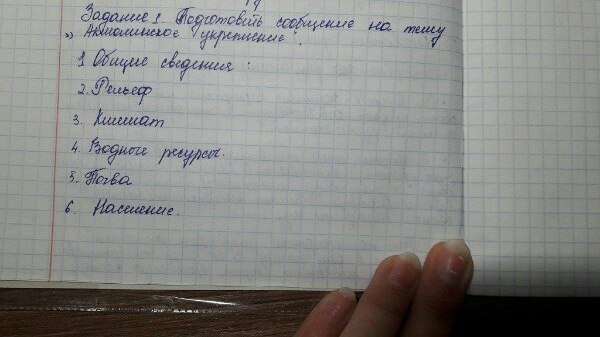 Задание 1. Подготовить сообщение на тему
„Акмолинское укрепление".
1 Общие сведения :
2. Рельеф
3. Климат
4. Водные ресурсы.
5. Почва
6. Население.